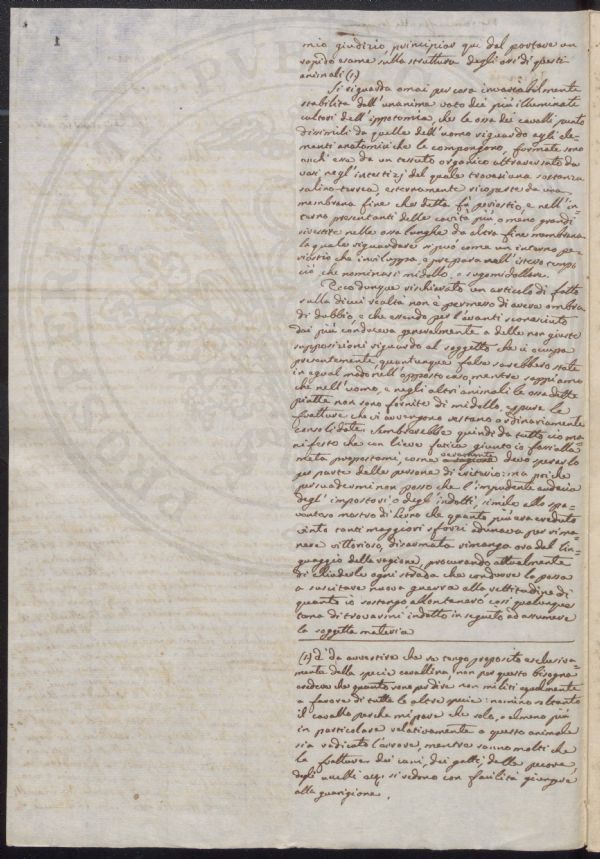 1
mio giudizio, principiar qui dal portare un
rapido esame sulla struttura degli ossi di questi
animali (1)
Si riguarda omai per cosa invariabilmente
stabilita dall'unanime voto dei più illuminati
cultori dell'ippotomia, che le ossa dei cavalli punto
dissimili da quelle dell'uomo riguardo agli ele-
menti anatomici che le compongono, formate sono
anch'esse da un tessuto organico attraversato da
vasi negl'interstizj del quale trovasi una sostanza
salino-terrea, esternamente ricoperte da una
membrana fine che detta fù periostio, e nell'in-
terno presentanti delle cavità più o meno grandi
rivestite nelle ossa lunghe da altra fine membrana
la quale riguardare si può come un interno pe-
riostio che inviluppa, e prepara nell'istesso tempo
ciò che nominasi midollo, o sugo midollare.
Ecco dunque rischiarato un articolo di fatto
sulla di cui realtà non è permesso di avere ombra
di dubbio, e che essendo per l'avanti sconosciuto
dai più conduceva generalmente a delle non giuste
supposizioni riguardo al soggetto che ci occupa
presentemente, quantunque false sarebbero state
in egual modo nell'opposto caso, mentre sappiamo
che nell'uomo, e negli altri animali le ossa delle
piatte non sono fornite di midollo, eppure le
fratture che vi avvengono restano ordinariamente
consolidate. Sembrerebbe quindi da tutto ciò ma-
nifesto che con lieve fatica giunto io fossi alla
meta propostami, come veramente devo sperarlo
per parte delle persone di criterio: ma poiche
persuadermi non posso che l'impudente audacia
degl'impostori o degl'indotti, simile allo spa-
ventoso mostro di Lerna che quanto più era creduto
vinto tanti maggiori sforzi adunava per rima-
nere vittorioso, disarmata rimanga ora dal lin-
guaggio della ragione, procurando attualmente
di chiuderle ogni strada che condurre la possa
a suscitare nuova guerra alla rettitudine di
quanto io sostengo allontanerò così qualunque
tema di trovarmi indotto in seguito ad assumere
la soggetta materia
(1) È da avvertire che se tengo proposito esclusiva-
mente della specie cavallina, non per questo bisogna
credere che quanto sono per dire non militi egualmente
a favore di tutte le altre specie: nomino soltanto
il cavallo perche mi pare che solo, o almeno più
in particolare relativamente a questo animale
sia radicato l'errore, mentre sanno molti che
le fratture dei cani, dei gatti, delle pecore,
degli uccelli ecc. si vedono con facilità giungere
alla guarigione.